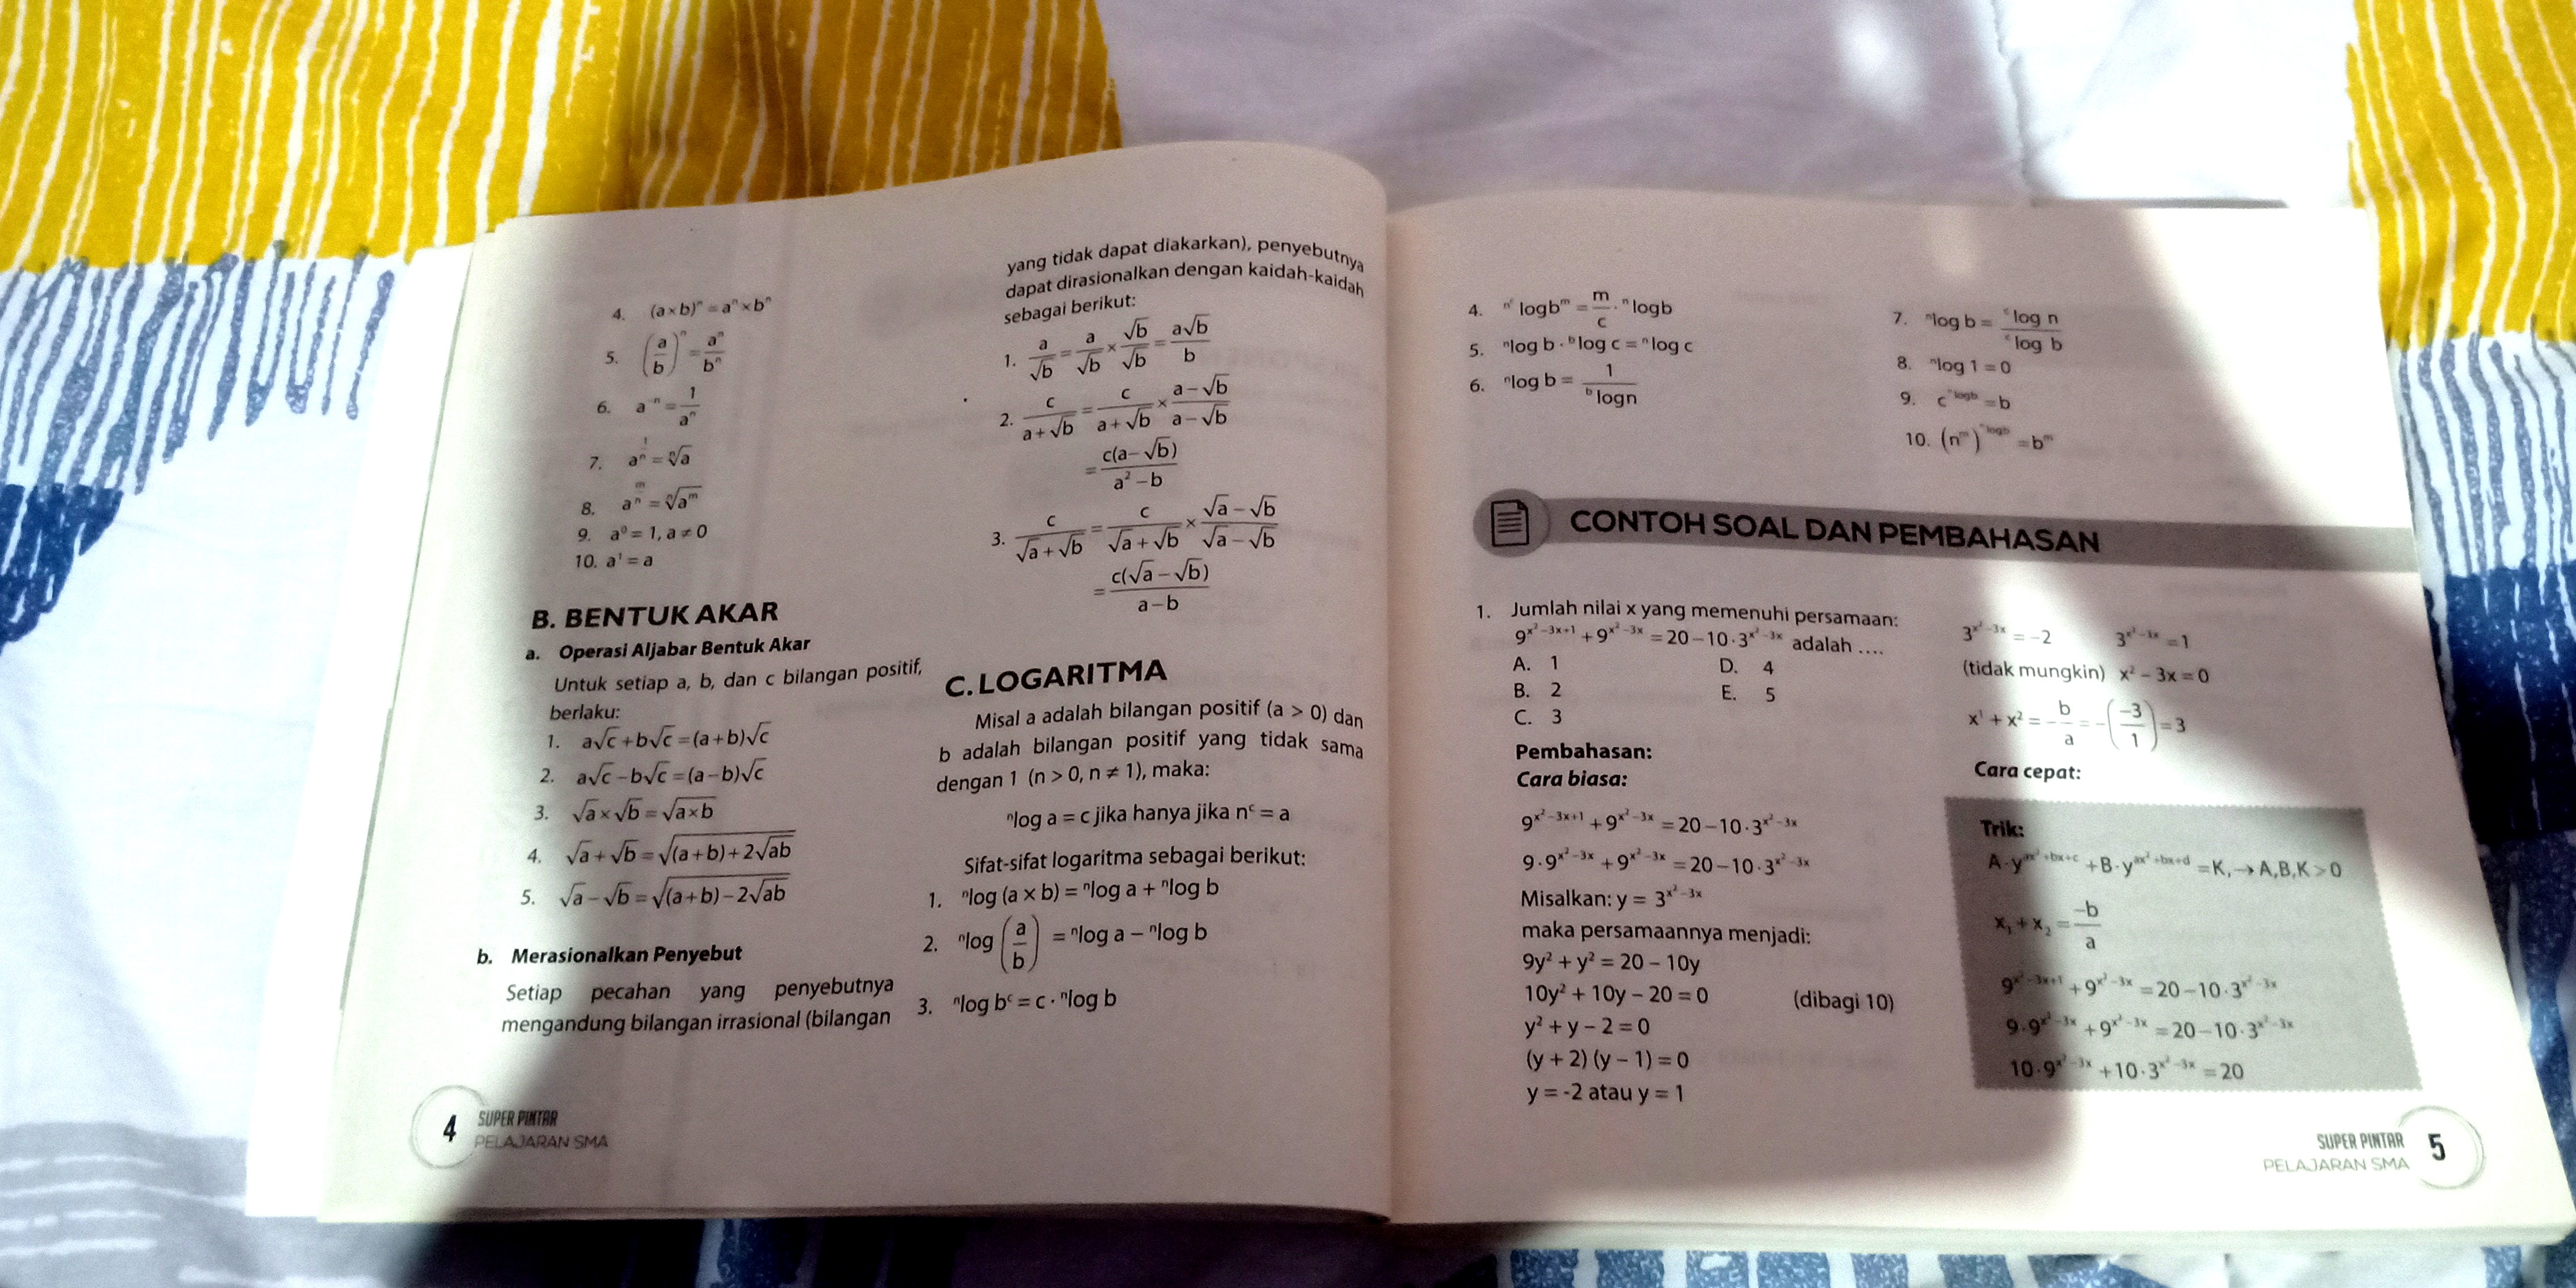 4. (a×b)ⁿ = aⁿ×bⁿ
5. (a/b)ⁿ = aⁿ/bⁿ
6. a⁻ⁿ = 1/aⁿ
7. a^(1/n) = ⁿ√a
8. a^(m/n) = ⁿ√(a^m)
9. a⁰ = 1, a ≠ 0
10. a¹ = a
B. BENTUK AKAR
a. Operasi Aljabar Bentuk Akar
Untuk setiap a, b, dan c bilangan positif,
berlaku:
1. a√c + b√c = (a+b)√c
2. a√c – b√c = (a–b)√c
3. √a × √b = √(a×b)
4. √a + √b = √((a+b)+2√(ab))
5. √a – √b = √((a+b)–2√(ab))
b. Merasionalkan Penyebut
Setiap pecahan yang penyebutnya
mengandung bilangan irrasional (bilangan
yang tidak dapat diakarkan), penyebutnya
dapat dirasionalkan dengan kaidah-kaidah
sebagai berikut:
1. a/√b = a/√b × √b/√b = a√b/b
2. c/(a+√b) = c/(a+√b) × (a–√b)/(a–√b)
= c(a–√b)/(a²–b)
3. c/(√a+√b) = c/(√a+√b) × (√a–√b)/(√a–√b)
= c(√a–√b)/(a–b)
C. LOGARITMA
Misal a adalah bilangan positif (a > 0) dan
b adalah bilangan positif yang tidak sama
dengan 1 (n > 0, n ≠ 1), maka:
ⁿlog a = c jika hanya jika nᶜ = a
Sifat-sifat logaritma sebagai berikut:
1. ⁿlog (a × b) = ⁿlog a + ⁿlog b
2. ⁿlog (a/b) = ⁿlog a – ⁿlog b
3. ⁿlog bᶜ = c · ⁿlog b
4 SUPER PINTAR
PELAJARAN SMA
4. ^(n^c)logb^m = m/c · ⁿlogb
5. ⁿlog b · ᵇlog c = ⁿlog c
6. ⁿlog b = 1/ᵇlogn
7. ⁿlog b = ᶜlog n/ᶜlog b
8. ⁿlog 1 = 0
9. c^(ⁿlogb) = b
10. (n^m)^(ⁿlogb) = b^m
CONTOH SOAL DAN PEMBAHASAN
1. Jumlah nilai x yang memenuhi persamaan:
9^(x²–3x+1) + 9^(x²–3x) = 20 – 10·3^(x²–3x) adalah ....
A. 1 D. 4
B. 2 E. 5
C. 3
Pembahasan:
Cara biasa:
9^(x²–3x+1) + 9^(x²–3x) = 20 – 10·3^(x²–3x)
9·9^(x²–3x) + 9^(x²–3x) = 20 – 10·3^(x²–3x)
Misalkan: y = 3^(x²–3x)
maka persamaannya menjadi:
9y² + y² = 20 – 10y
10y² + 10y – 20 = 0 (dibagi 10)
y² + y – 2 = 0
(y + 2) (y – 1) = 0
y = -2 atau y = 1
3^(x²–3x) = –2 3^(x²–3x) = 1
(tidak mungkin) x² – 3x = 0
x¹ + x² = –b/a = –(–3/1) = 3
Cara cepat:
Trik:
A·y^(ax²+bx+c) + B·y^(ax²+bx+d) = K, → A,B,K > 0
x₁ + x₂ = –b/a
9^(x²–3x+1) + 9^(x²–3x) = 20 – 10·3^(x²–3x)
9·9^(x²–3x) + 9^(x²–3x) = 20 – 10·3^(x²–3x)
10·9^(x²–3x) + 10·3^(x²–3x) = 20
SUPER PINTAR 5
PELAJARAN SMA